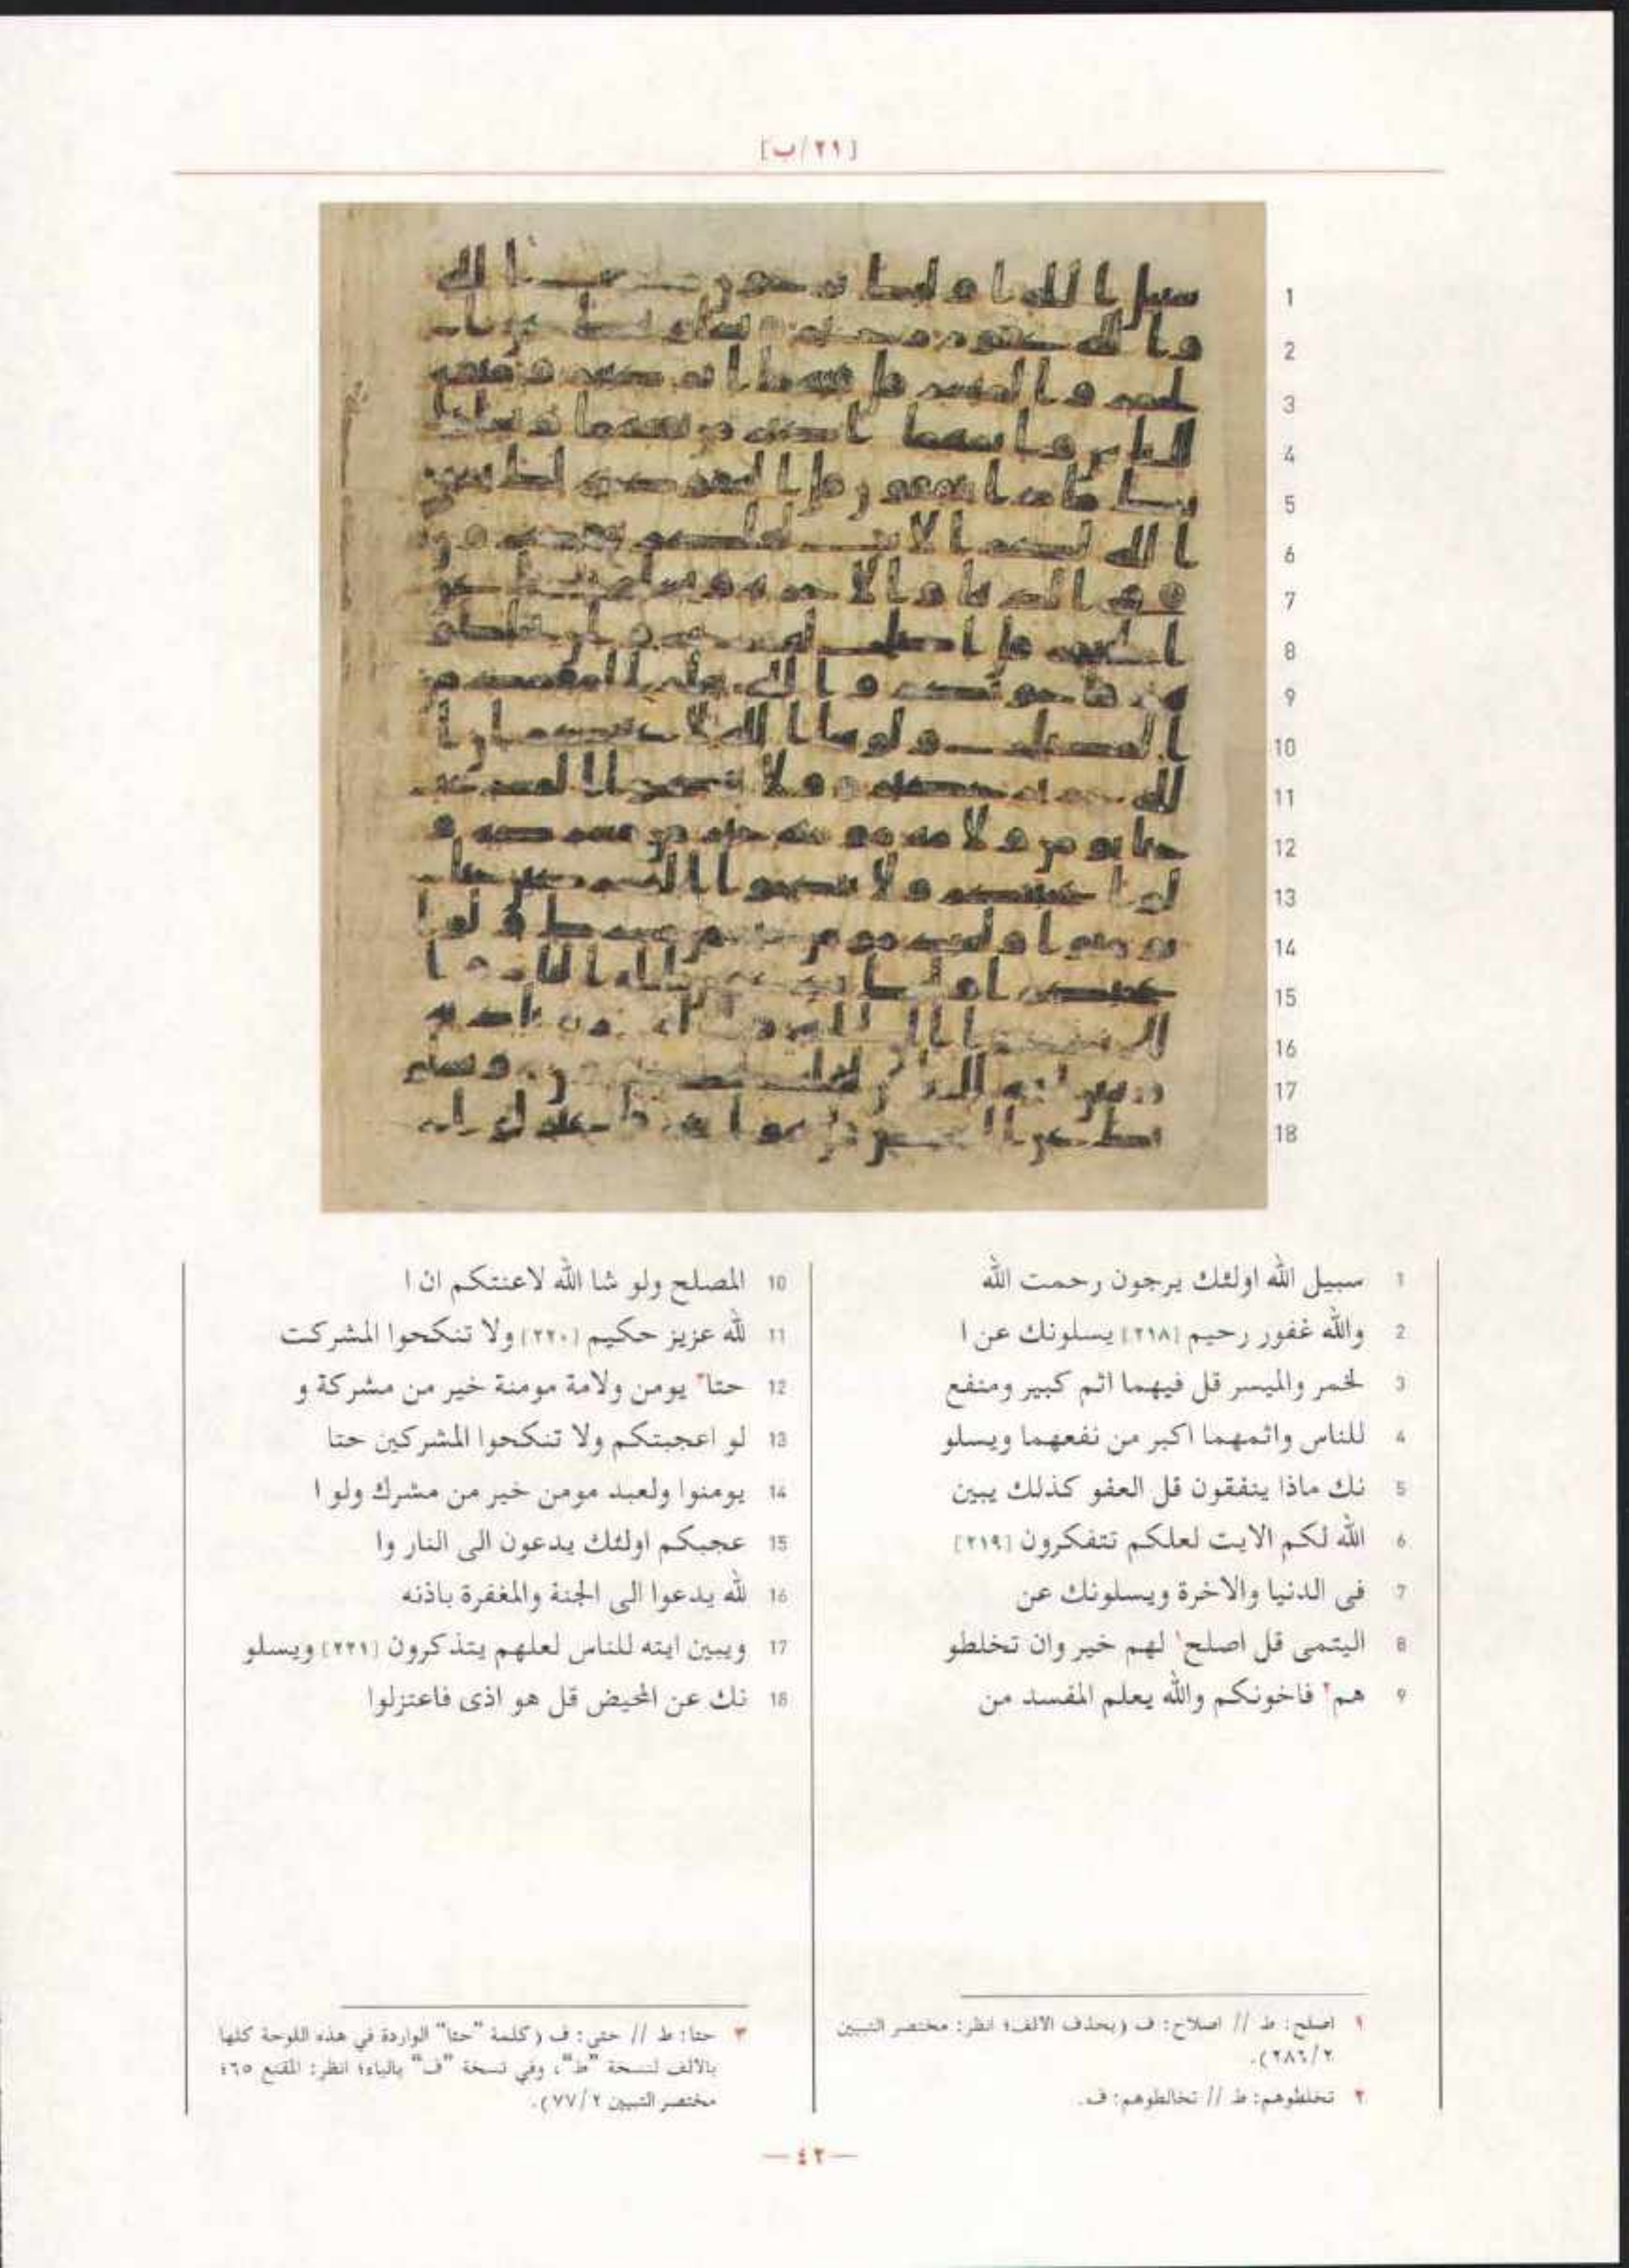 [٢١/ب]
1 سبيل الله اولئك يرجون رحمت الله
2 والله غفور رحيم [٢١٨] يسلونك عن ا
3 لخمر والميسر قل فيهما اثم كبير ومنفع
4 للناس واثمهما اكبر من نفعهما ويسلو
5 نك ماذا ينفقون قل العفو كذلك يبين
6 الله لكم الايت لعلكم تتفكرون [٢١٩]
7 فى الدنيا والاخرة ويسلونك عن
8 اليتمى قل اصلح١ لهم خير وان تخلطو
9 هم٢ فاخونكم والله يعلم المفسد من
10 المصلح ولو شا الله لاعنتكم ان ا
11 لله عزيز حكيم [٢٢٠] ولا تنكحوا المشركت
12 حتا٣ يومن ولامة مومنة خير من مشركة و
13 لو اعجبتكم ولا تنكحوا المشركين حتا
14 يومنوا ولعبد مومن خير من مشرك ولو ا
15 عجبكم اولئك يدعون الى النار وا
16 لله يدعوا الى الجنة والمغفرة باذنه
17 ويبين ايته للناس لعلهم يتذكرون [٢٢١] ويسلو
18 نك عن المحيض قل هو اذى فاعتزلوا
١ اصلح: ط // اصلاح: ف (بحذف الالف؛ انظر: مختصر التبيين
٢/٢٨٦).
٢ تخلطوهم: ط // تخالطوهم: ف.
٣ حتا: ط // حتى: ف (كلمة "حتا" الواردة في هذه اللوحة كلها
بالالف لنسخة "ط"، وفي نسخة "ف" بالياء؛ انظر: المقنع ٦٥؛
مختصر التبيين ٢/٧٧).
—٤٢—